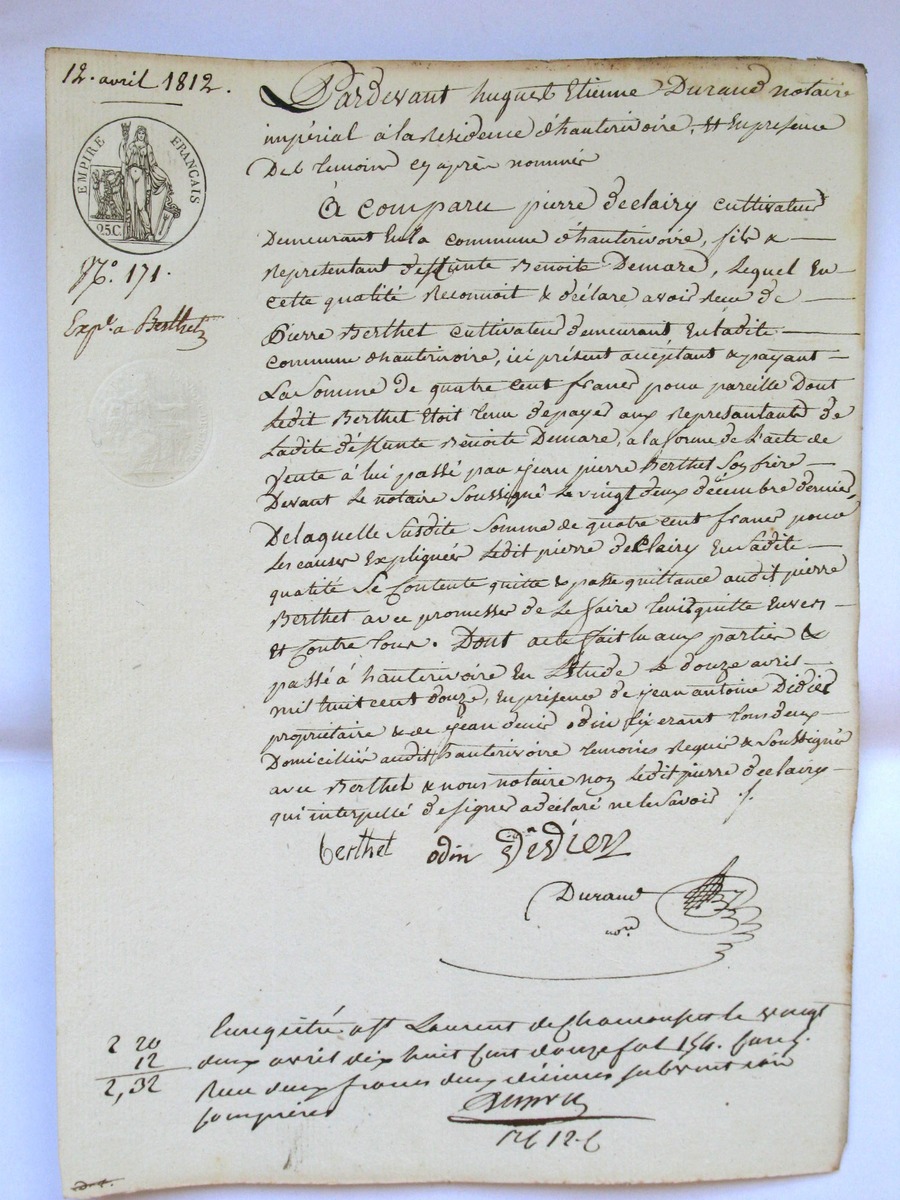 12. avril 1812.
EMPIRE FRANÇAIS
25 C.
N.º 171.
Exp.e a Berthet
Pardevant huguet Etienne Durand notaire
impérial à la Residence d'hauterivoire. Et En presence
Des temoins cy après nommés
A comparu pierre declairy cultivateur
Demeurant En la commune d'hauterivoire, fils &
Representant deffunte Benoite Demare, Lequel En
cette qualité Reconnoit & déclare avoir Reçu de
Pierre Berthet cultivateur demeurant En ladite
commune d'hauterivoire, ici présent acceptant & payant
La Somme De quatre cent francs pour pareille Dont
Ledit Berthet Etoit tenu de payer aux Représantants de
Ladite deffunte Benoite Demare, a la forme de L'acte de
Vente à lui passé par jean pierre Berthet Son frère
Devant Le notaire Soussigné Le vingt deux décembre dernier,
De laquelle Susdite Somme de quatre cent francs pour
Les causes Expliquées Ledit pierre declairy En Sadite
qualité Se Contente quitte & passe quittance audit pierre
Berthet avec promesses de Le faire tenir quitte Envers
Et Contre tous. Dont acte fait lu aux parties &
passé à hauterivoire En L'Etude Le douze avril
mil huit cent douze, En présence de jean antoine Didier
propriétaire & de jean denis odin tixerant tous deux
Domiciliés audit hauterivoire temoins Requis & Soussignés
avec Berthet & nous notaire non Ledit pierre declairy
qui interpellé de signer a déclaré ne le Savoir ./.
berthet odin Didier
Durand
nore
2 20
12
2,32
Enregistré a St Laurent de Chamousset le vingt
deux avril dix huit cent douze fol 154.
Reçu deux francs deux décimes subvention
comprise